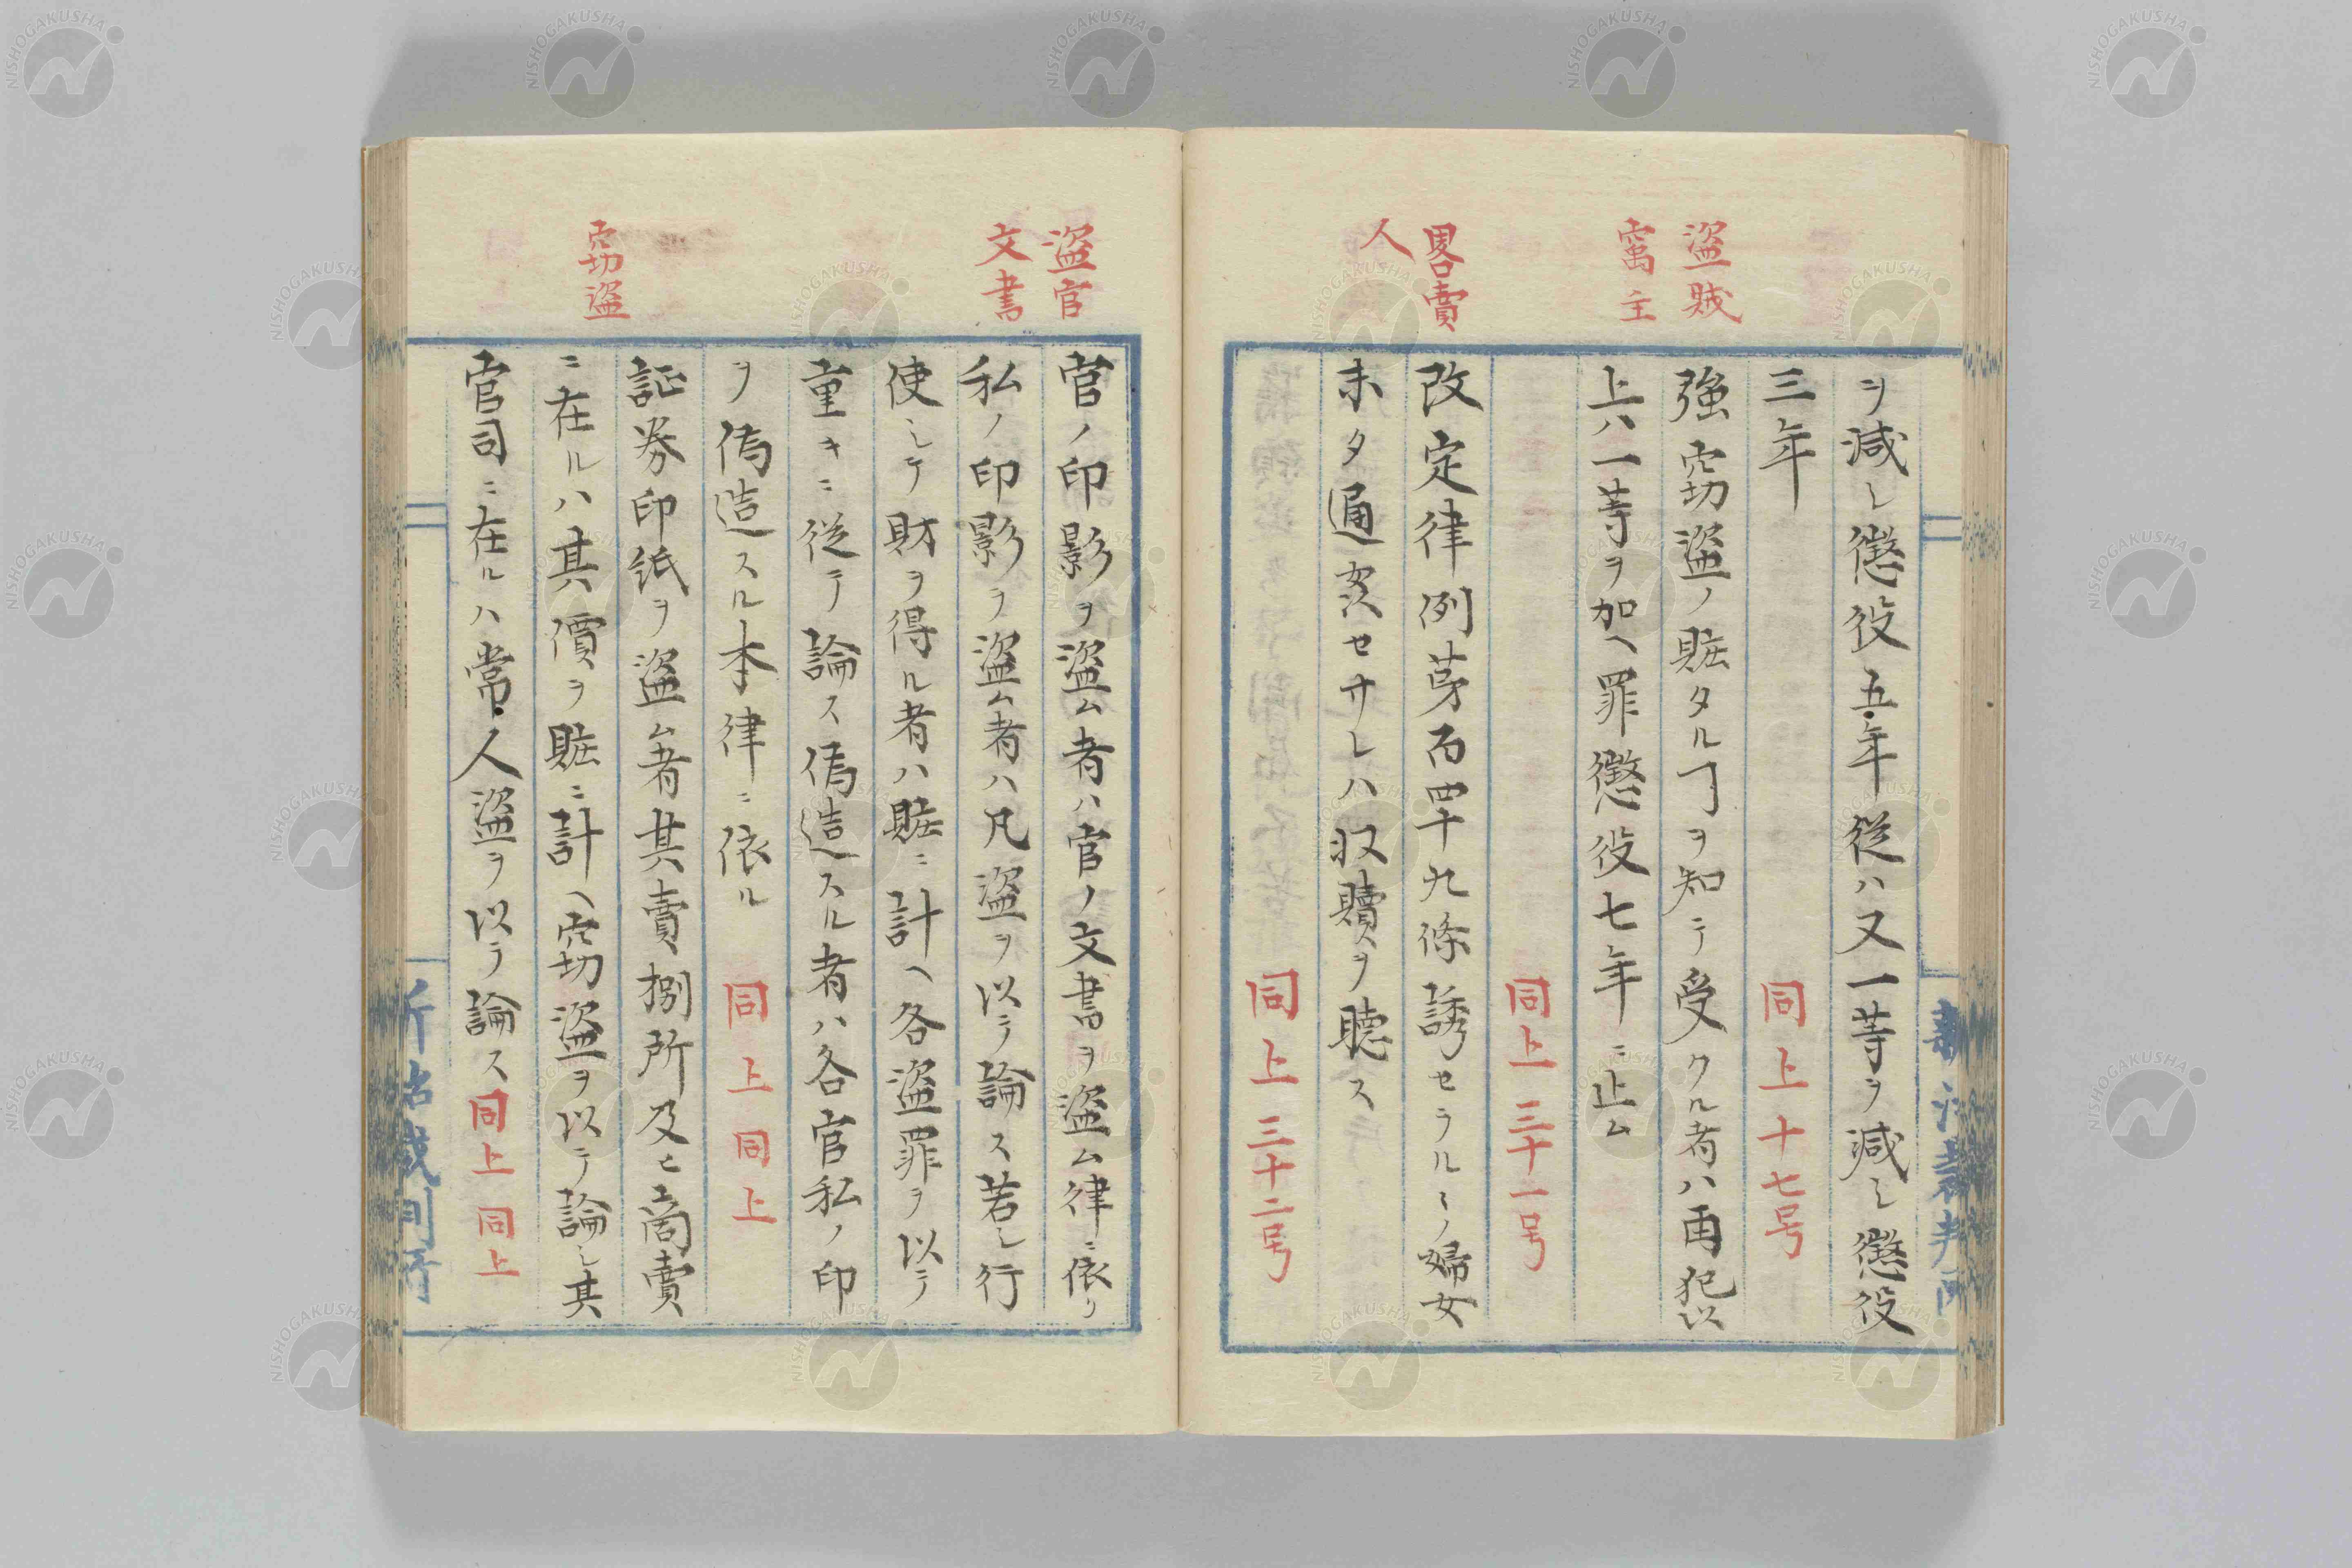 ヲ減シ懲役五年従ハ又一等ヲ減シ懲役
三年 同上十七号
盗賊
窩主
強窃盗ノ賍タルヿヲ知テ受クル者ハ再犯以
上ハ一等ヲ加ヘ罪懲役七年ニ止ム
同上三十一号
畧賣
人
改定律例苐百四十九條誘セラルヽノ婦女
未タ通姦セサレハ収贖ヲ聴ス
同上三十二号
盗官
文書
官ノ印影ヲ盗ム者ハ官ノ文書ヲ盗ム律ニ依リ
私ノ印影ヲ盗ム者ハ凡盗ヲ以テ論ス若シ行
使シテ財ヲ得ル者ハ賍ニ計ヘ各盗罪ヲ以テ
重キニ従テ論ス偽造スル者ハ各官私ノ印
ヲ偽造スル本律ニ依ル 同上同上
窃盗
証券印紙ヲ盗ム者其賣捌所及ヒ商賣
ニ在ルハ其價ヲ賍ニ計ヘ窃盗ヲ以テ論シ其
官司ニ在ルハ常人盗ヲ以テ論ス同上同上
NISHOGAKUSHA